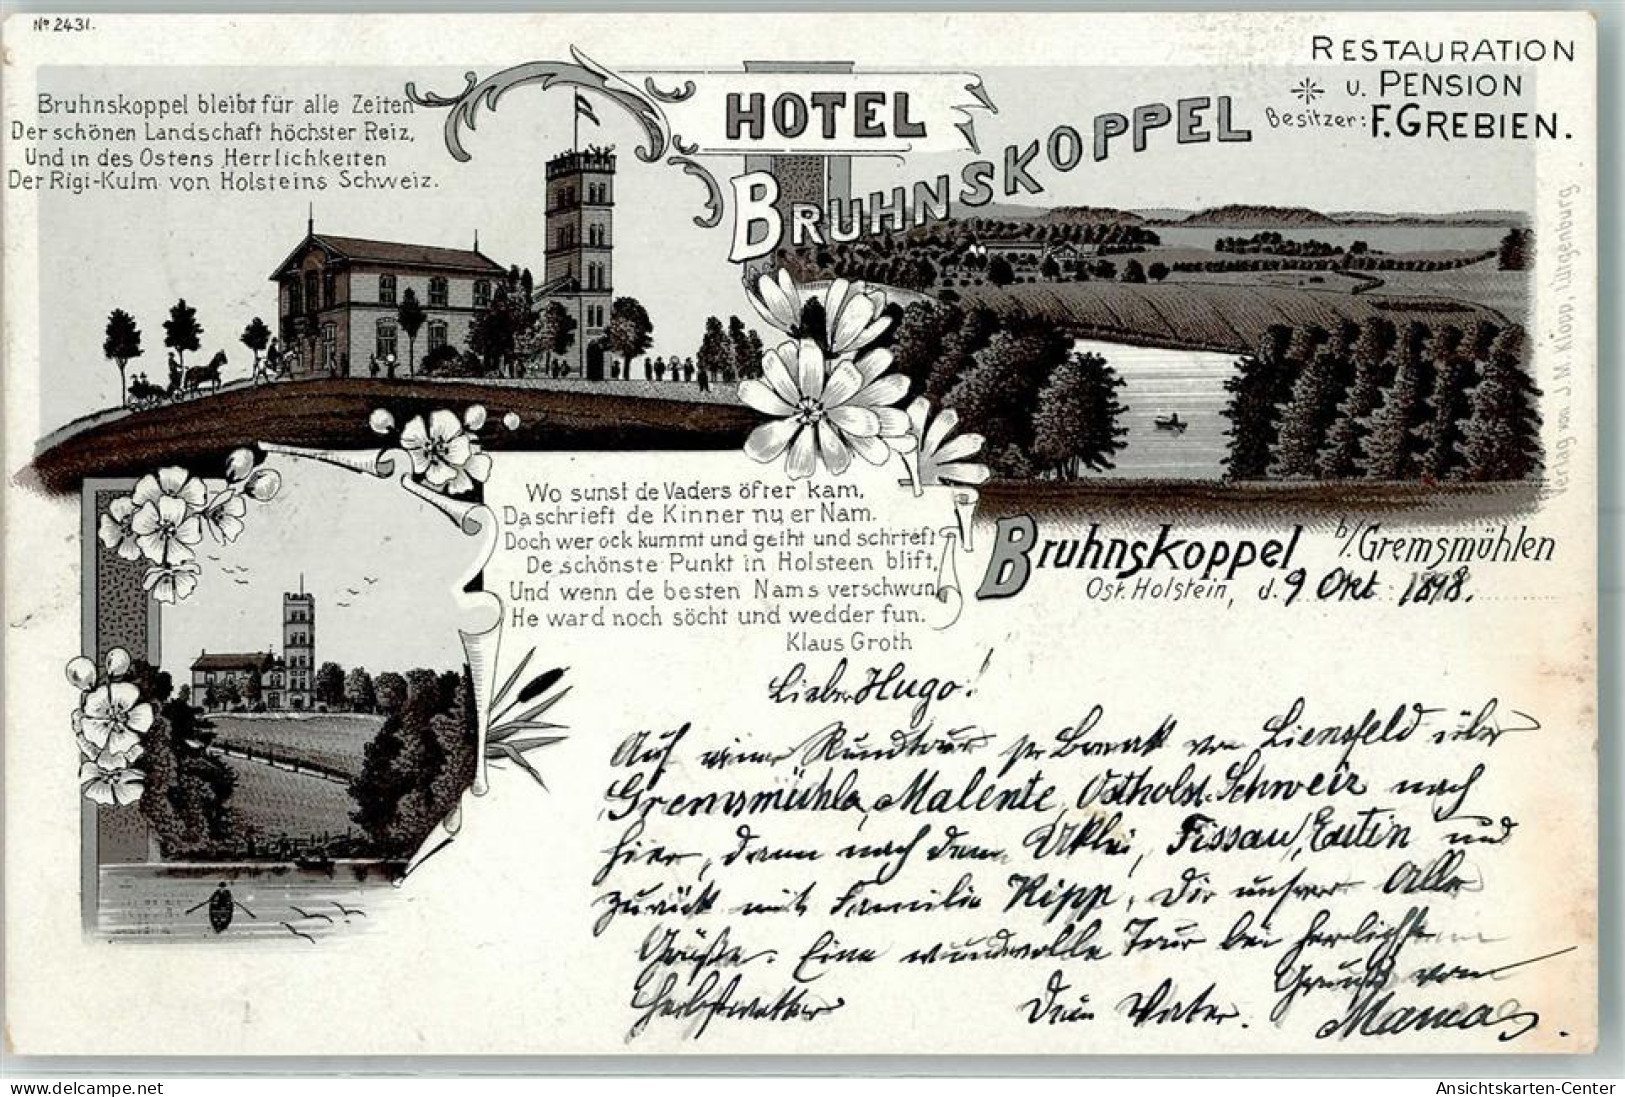 No 2431.
RESTAURATION
u. PENSION
Besitzer: F. GREBIEN.
HOTEL
BRUHNSKOPPEL
Bruhnskoppel bleibt für alle Zeiten
Der schönen Landschaft höchster Reiz,
Und in des Ostens Herrlichkeiten
Der Rigi-Kulm von Holsteins Schweiz.
Verlag von J. M. Klopp, Lütgenburg.
Wo sunst de Vaders öfter kam,
Da schrieft de Kinner nu er Nam.
Doch wer ock kummt und geiht und schrieft
De schönste Punkt in Holsteen blift,
Und wenn de besten Nams verschwun,
He ward noch söcht und wedder fun.
Klaus Groth
Bruhnskoppel b/. Gremsmühlen
Ost. Holstein, d. 9 Okt. 1898.
Lieber Hugo!
Auf einer Rundtour pr Break von Liensfeld über
Gremsmühle, Malente, Ostholst. Schweiz nach
hier, dann nach dem Uklei, Fissau, Eutin und
zurück mit Familie Kipp, Dir unser Aller
Grüße. Eine wundervolle Tour bei herlichstem
Herbstwetter Dein Vater. Gruß von
Mama.
Ansichtskarten-Center